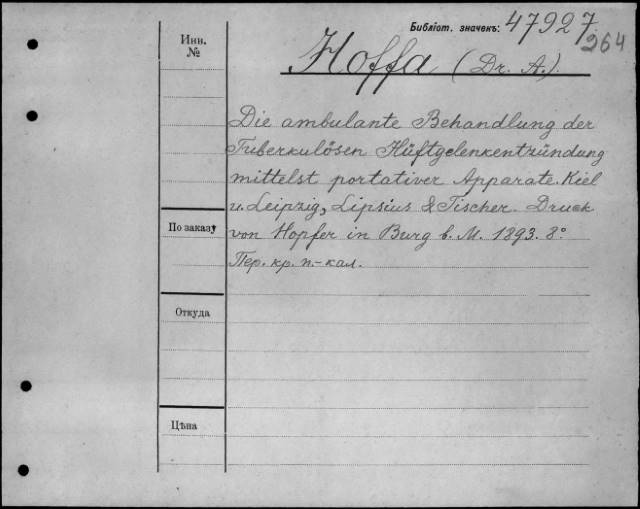 Библіот. значекъ: 47927
264
Инв.
№
Hoffa (Dr. A.).
Die ambulante Behandlung der
Tuberkulösen Hüftgelenkentzündung
mittelst portativer Apparate. Kiel
u. Leipzig, Lipsius & Tischer. Druck
По заказу
von Hopfer in Burg b. M. 1893. 8°.
Пер. кр. п.-кал.
Откуда
Цѣна